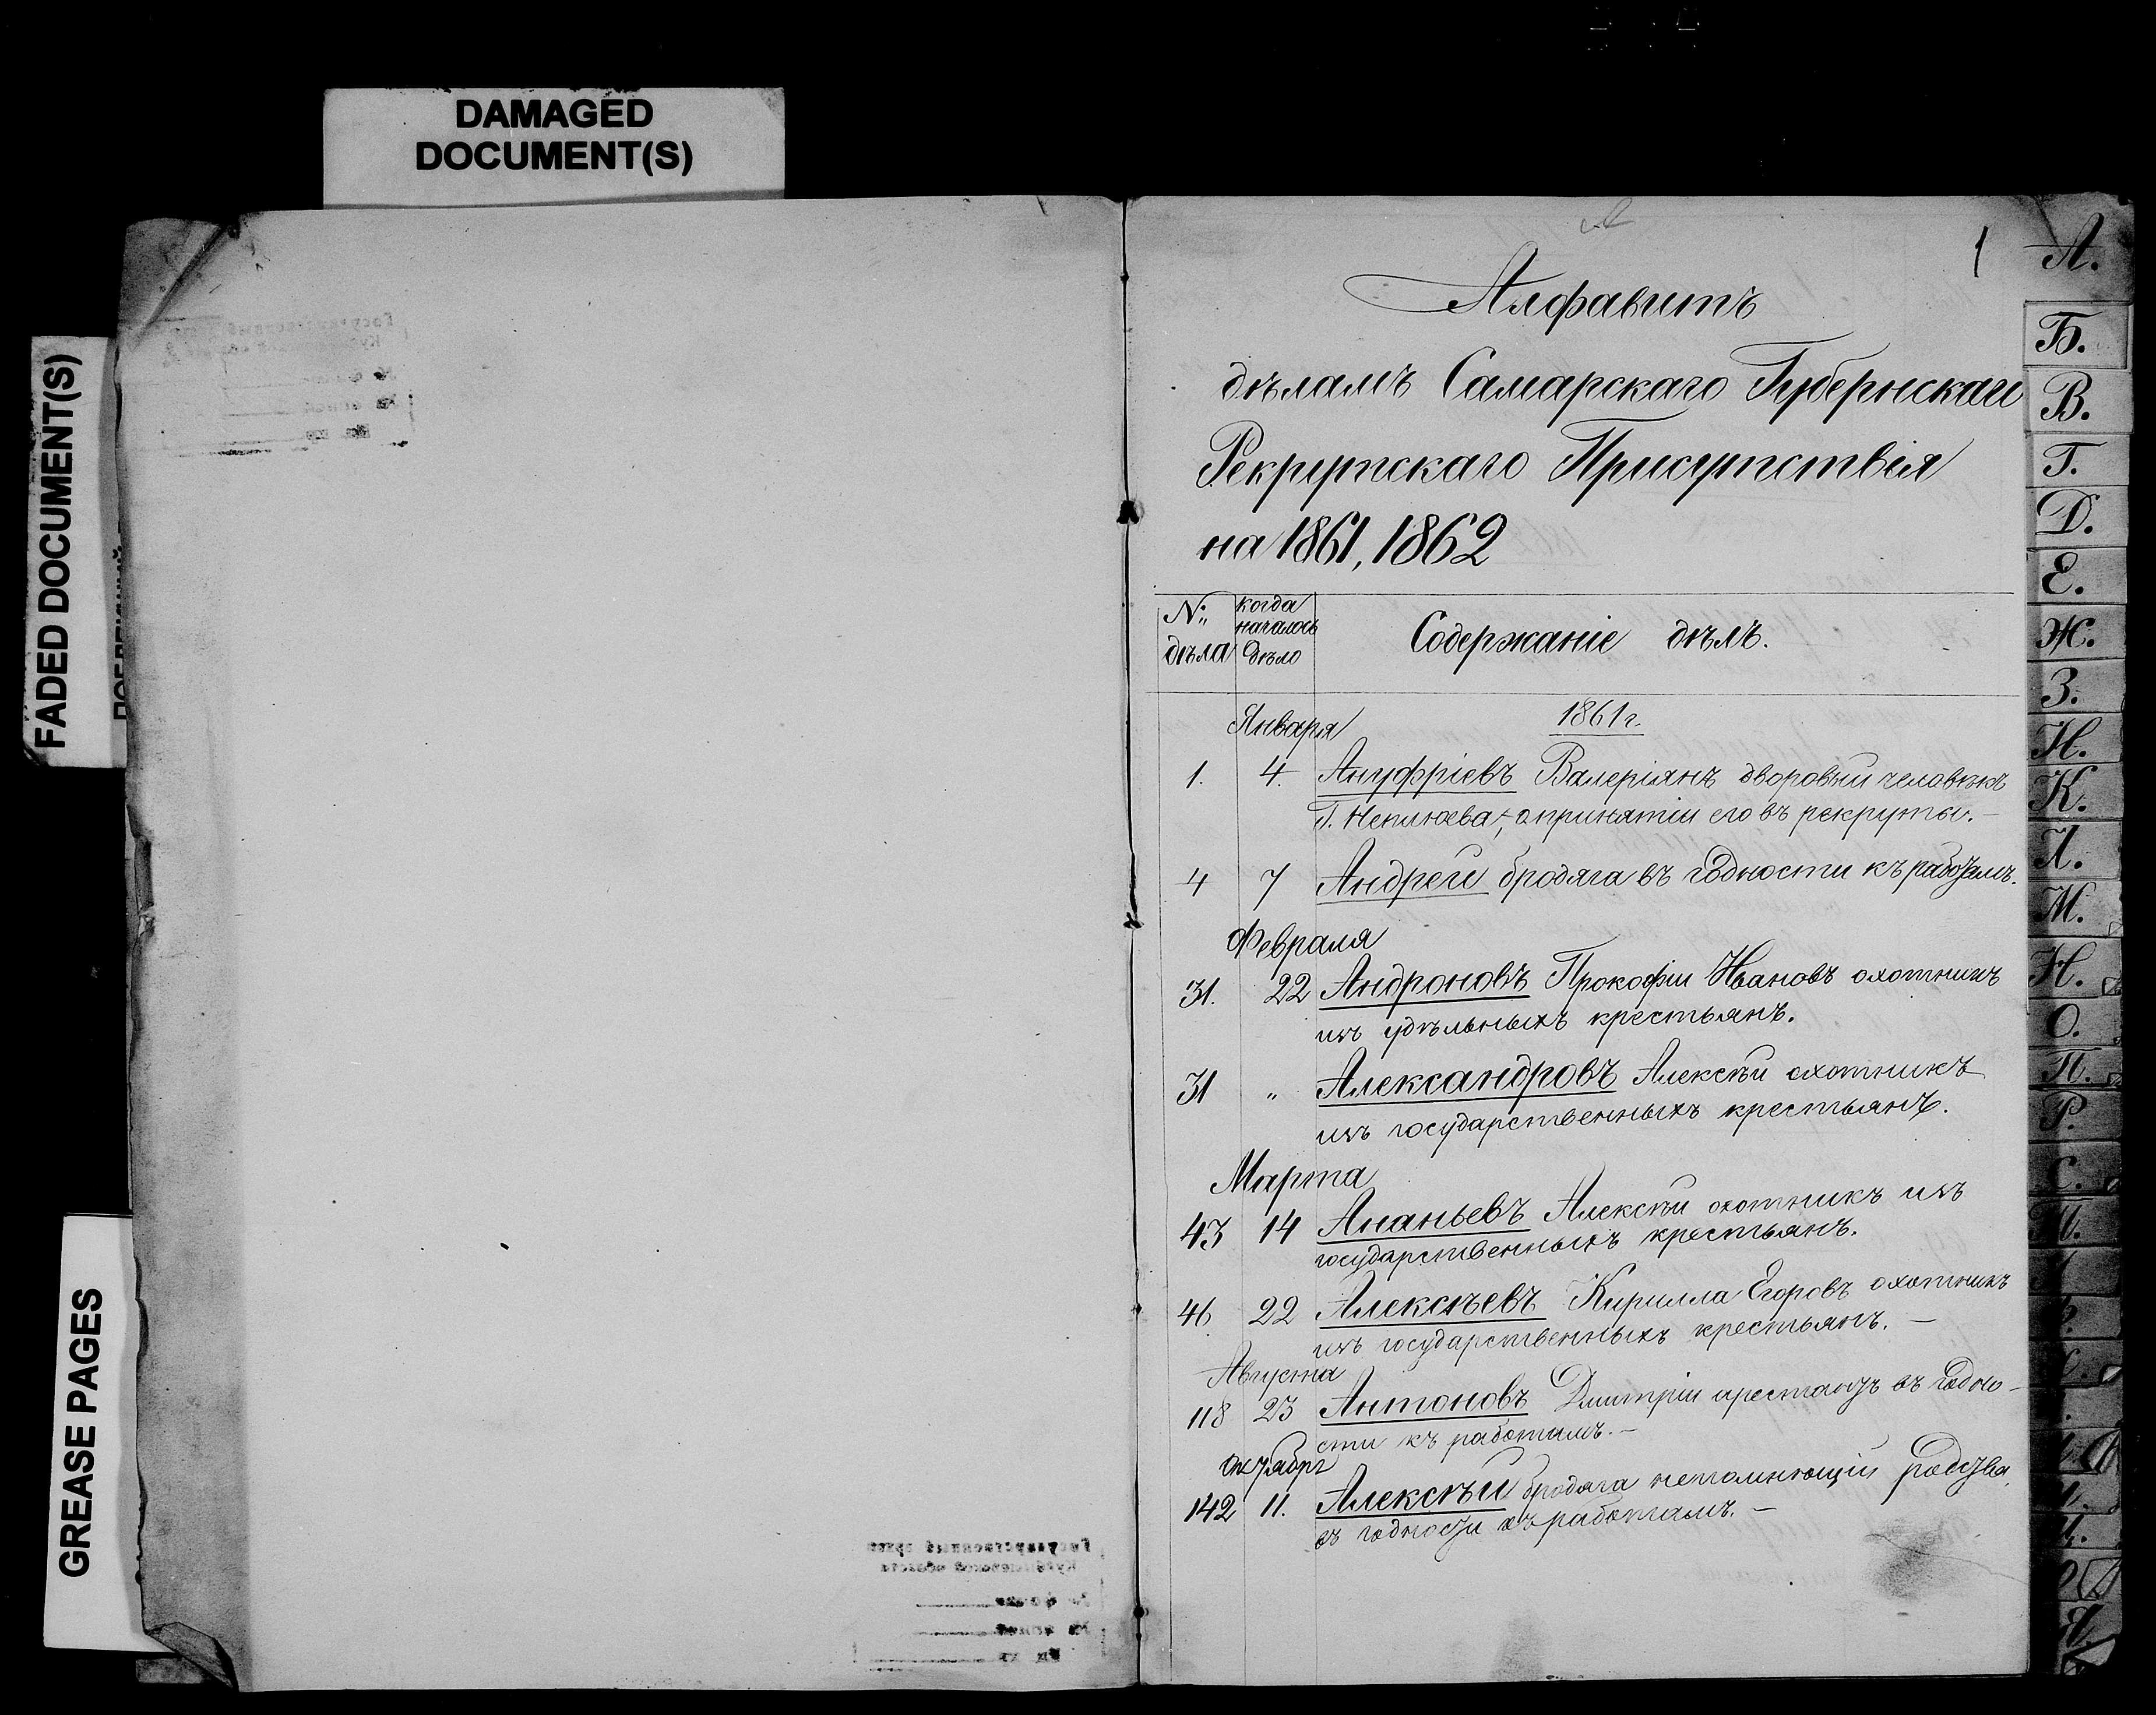 DAMAGED
DOCUMENT(S)
FADED DOCUMENT(S)
GREASE PAGES
1
Алфавитъ
дѣламъ Самарскаго Губернскаго
Рекрутскаго Присутствія
на 1861, 1862
№ дѣла
когда началось дѣло
Содержаніе дѣлъ.
Января
1861 г.
1. 4. Ануфріевъ Валеріянъ дворовый человѣкъ
Г. Неплюева, о принятіи его въ рекруты.—
4 7 Андрей бродяга въ годности къ работамъ.
Февраля
31. 22 Андроновъ Прокофій Ивановъ охотникъ
изъ удѣльныхъ крестьянъ.
31 " Александровъ Алексѣй охотникъ
изъ государственныхъ крестьянъ.
Марта
43 14 Ананьевъ Алексѣй охотникъ изъ
государственныхъ крестьянъ.
46 22 Алексѣевъ Кирилла Егоровъ охотникъ
изъ государственныхъ крестьянъ. —
Августа
118 23 Антоновъ Дмитрій арестантъ въ годно-
сти къ работамъ. —
Октября
142 11. Алексѣй бродяга непомнющій родства,
въ годности къ работамъ. —
А.
Б.
В.
Г.
Д.
Е.
Ж.
З.
И.
К.
Л.
М.
Н.
О.
П.
Р.
С.
Т.